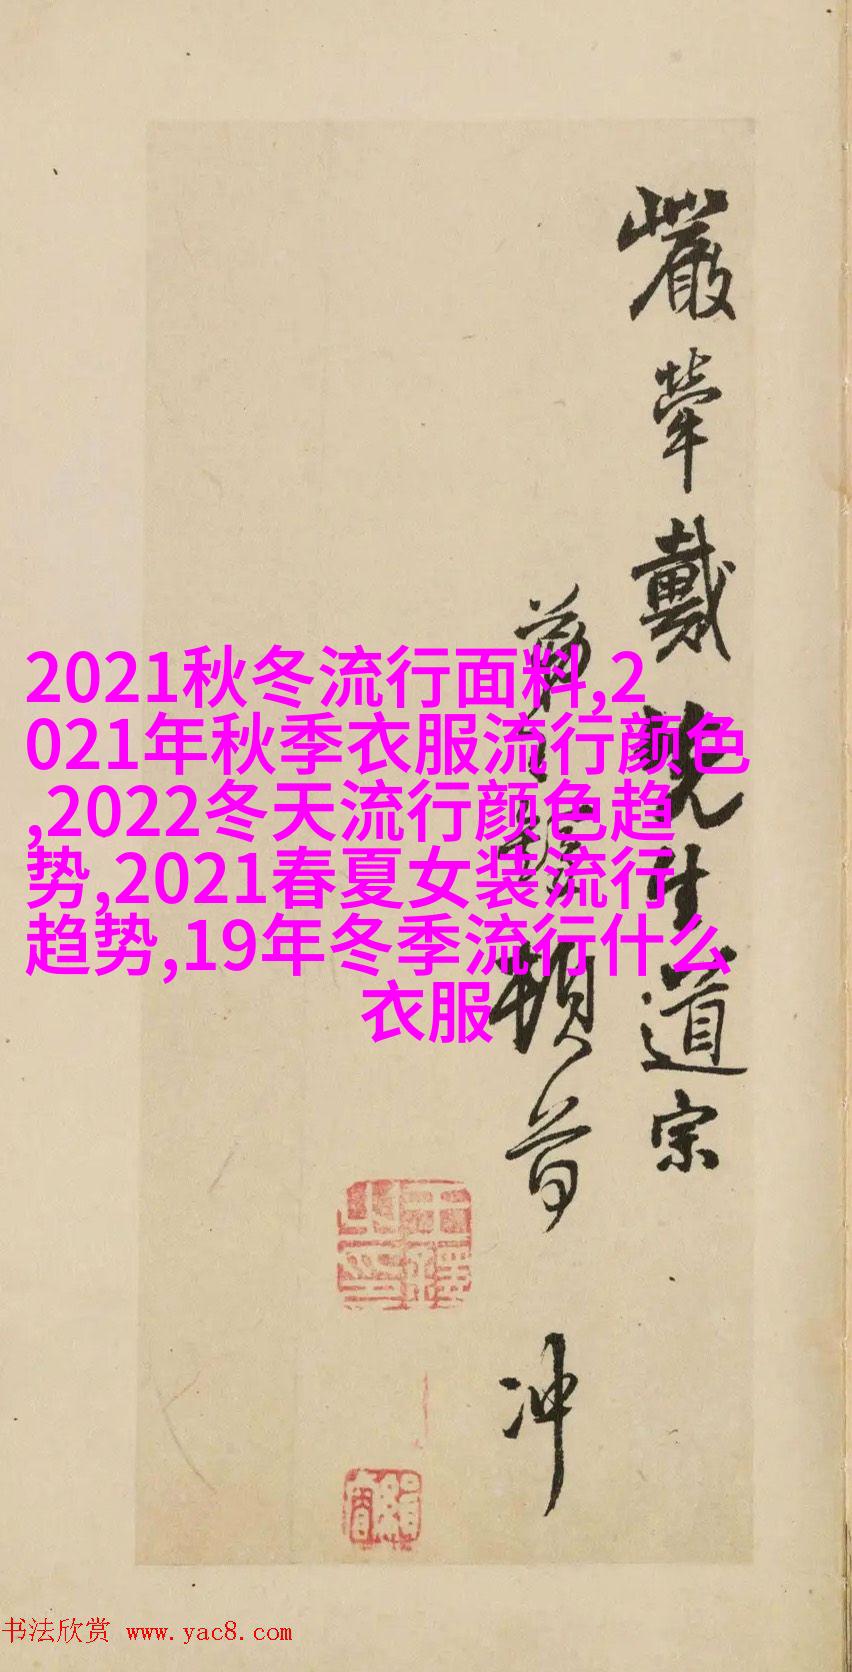 嚴犖戴先生道宗
頓首
冲
2021秋冬流行面料,2
021年秋季衣服流行颜色
,2022冬天流行颜色趋
势,2021春夏女装流行
趋势,19年冬季流行什么
衣服
书法欣赏 www.yac8.com